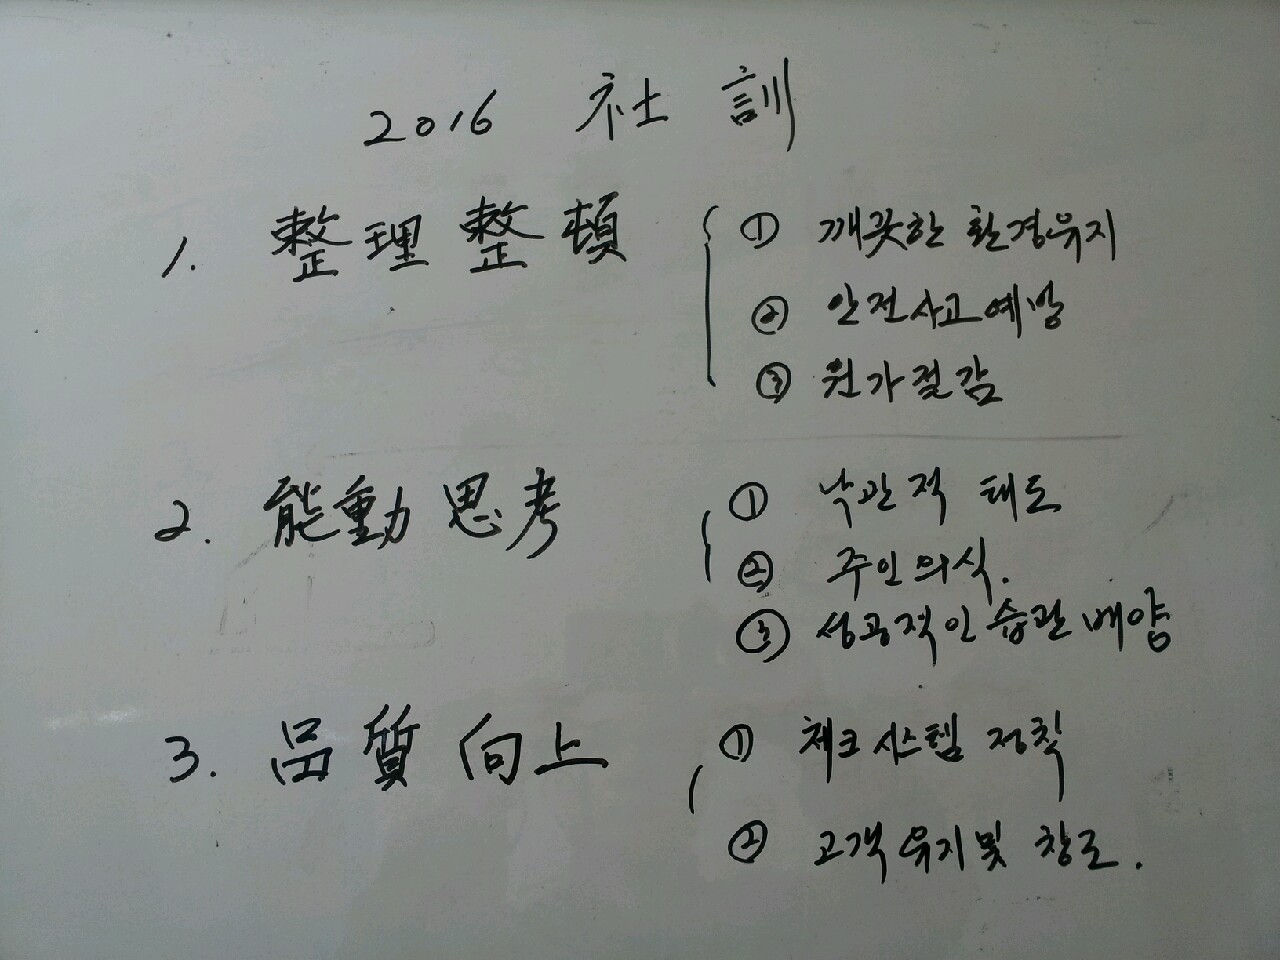 2016 社訓
1. 整理整頓
① 깨끗한 환경유지
② 안전사고예방
③ 원가절감
2. 能動思考
① 낙관적 태도
② 주인의식.
③ 성공적인 습관 배양
3. 品質向上
① 체크시스템 정착
② 고객유지및 창조.